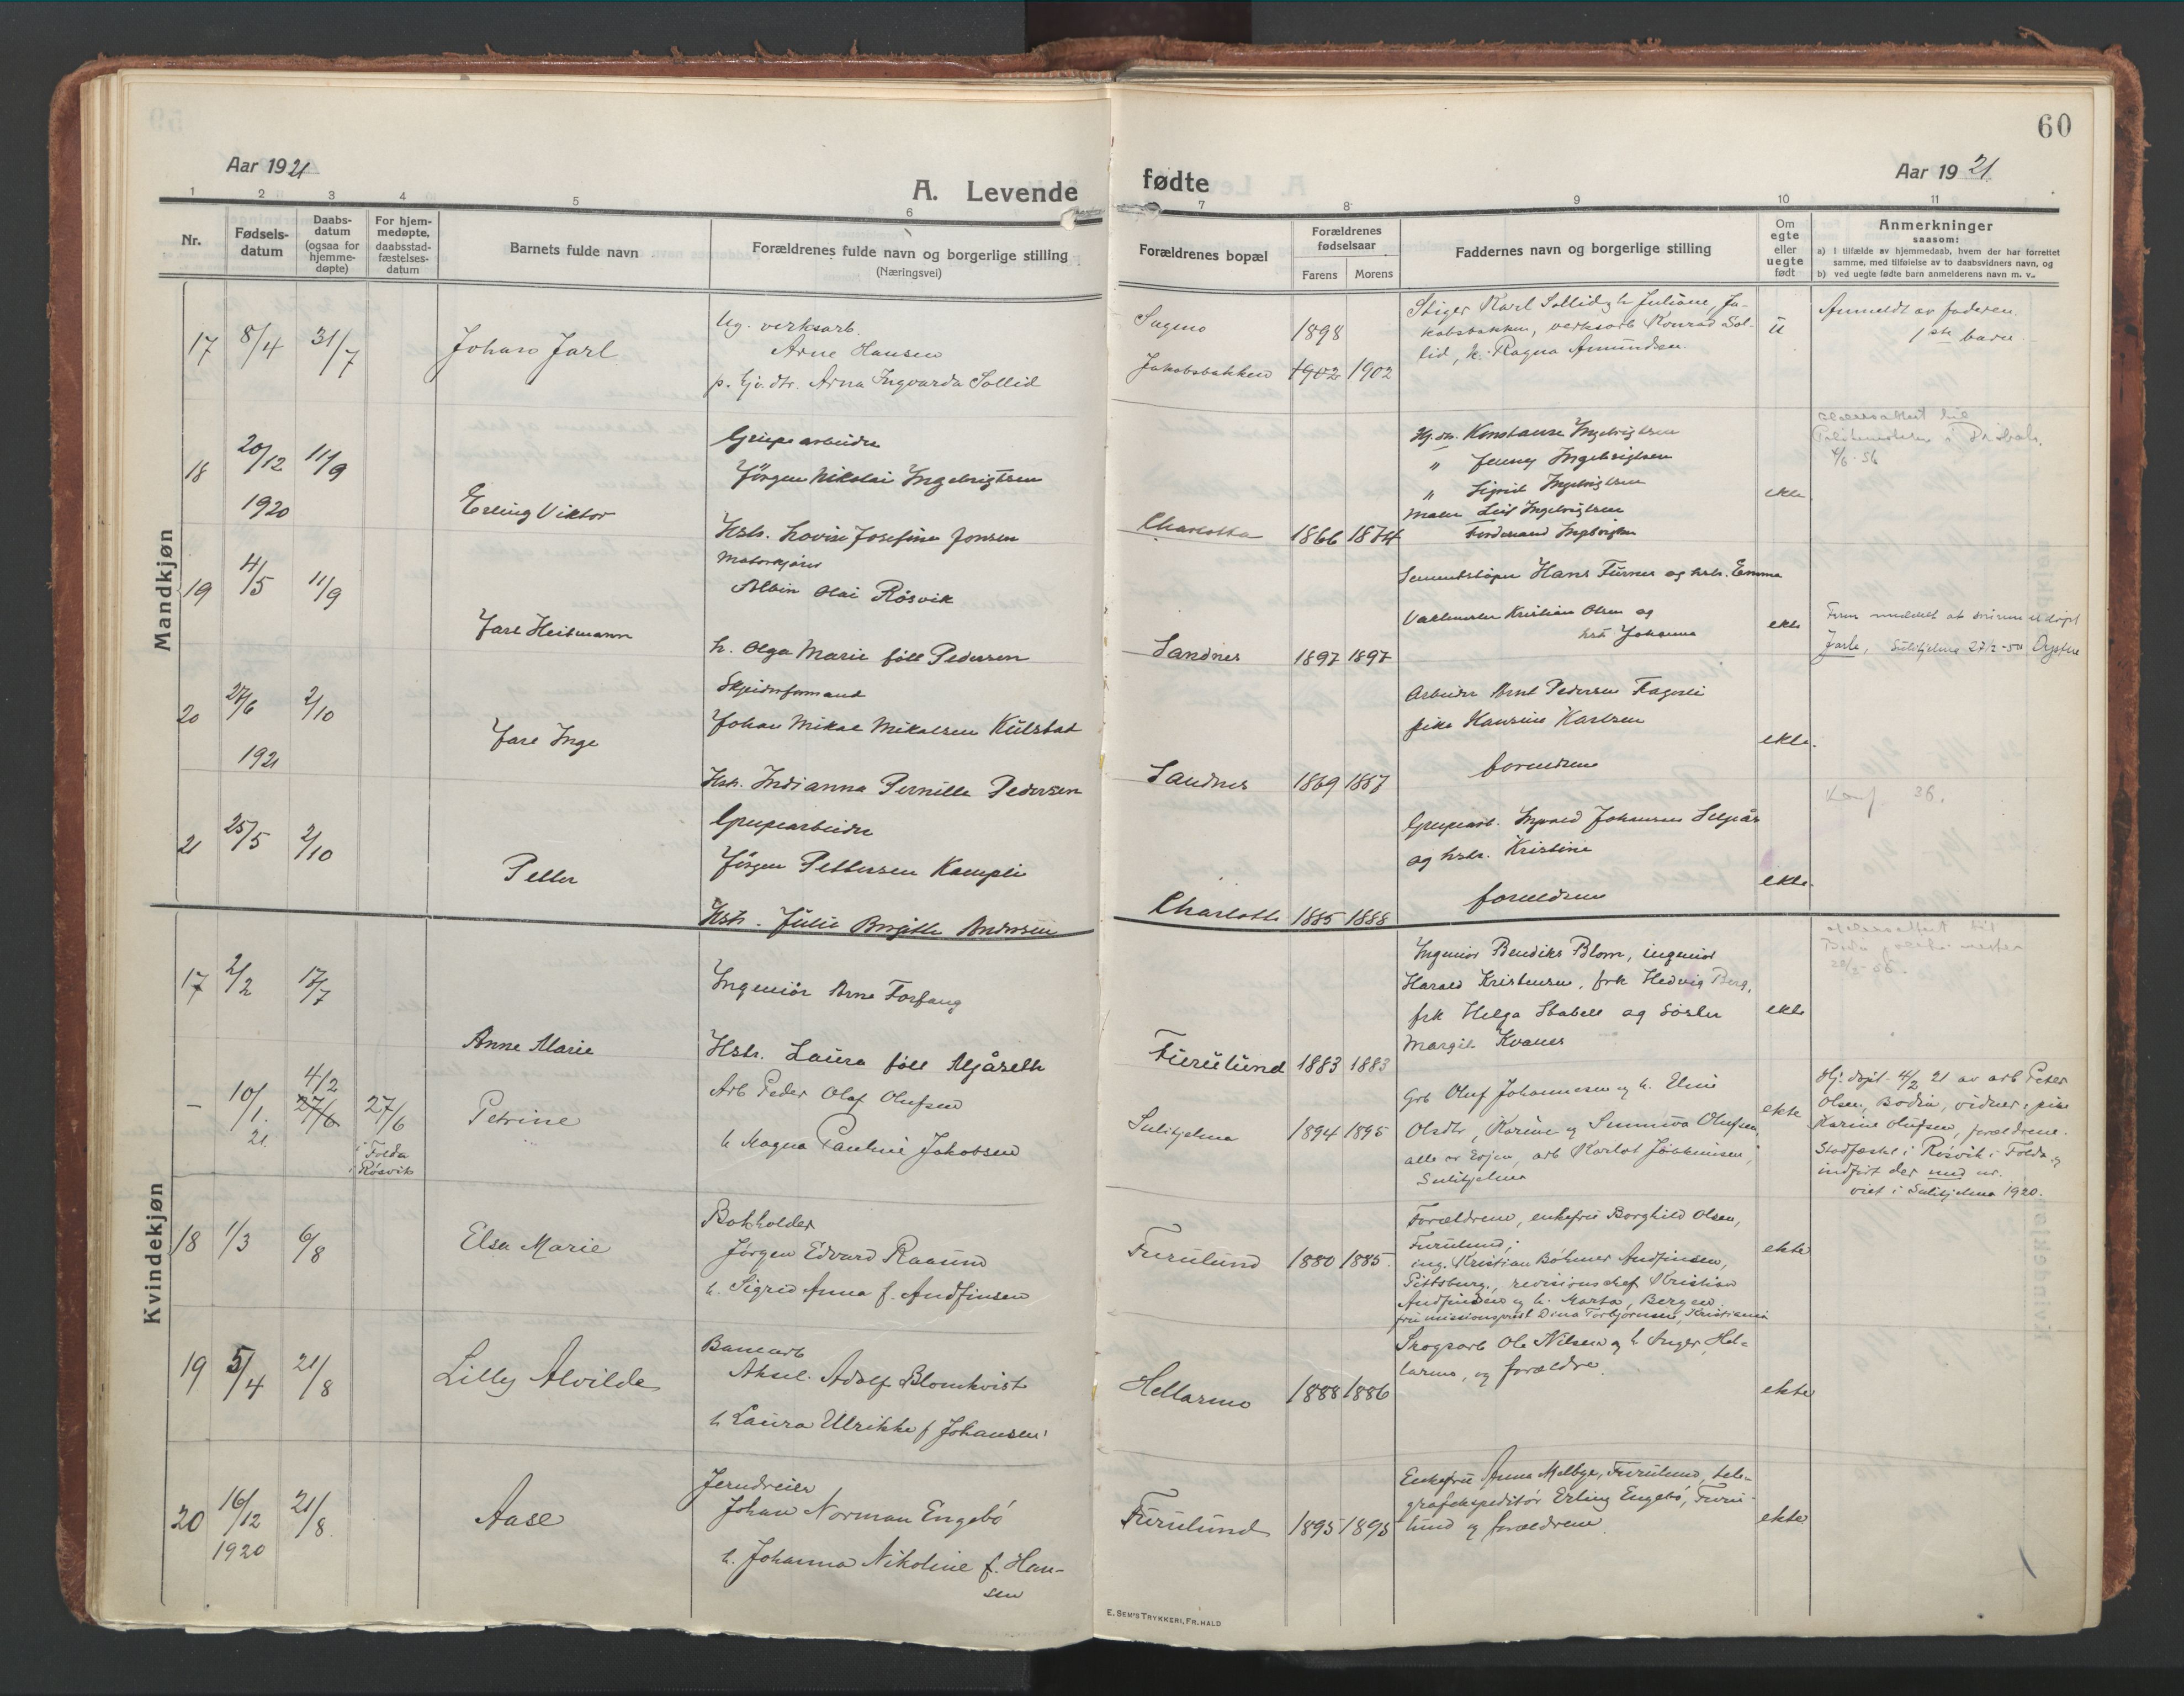 60
Aar 1921
A. Levende
fødte
Aar 1921
1 2 3 4 5 6 7 8 9 10 11
Nr.
Fødsels-
datum
Daabs-
datum
(ogsaa for
hjemme-
døpte)
For hjem-
medøpte,
daabsstad-
fæstelses-
datum
Barnets fulde navn
Forældrenes fulde navn og borgerlige stilling
(Næringsvei)
Forældrenes bopæl
Forældrenes
fødselsaar
Farens
Morens
Faddernes navn og borgerlige stilling
Om
egte
eller
uegte
født
Anmerkninger
saasom:
a) I tilfælde av hjemmedaab, hvem der har forrettet
samme, med tilføielse av to daabsvidners navn, og
b) ved uegte fødte barn anmelderens navn m. v..
Mandkjøn
17 8/4 31/7
Johan Jarl
Ug. verksarb.
Arne Hansen
p. Gj.dtr. Arna Ingvarda Sollid
Jakobsbakken
1898
1902 1902
Stiger Karl Sollid, h Juliane, Ja-
kobsbakken, verksarb Konrad Sol-
lid, h. Ragna Amundsen
u
Anmeldt av faderen.
1ste barn
18 20/12 11/9
1920
Erling Viktor
Grubearbeider
Jörgen Nikolai Ingebrigtsen
Hstr. Lovise Josefine Jonsen
Charlotta 1866 1874
Hj.dtr. Konstanse Ingebrigtsen
" Jenny Ingebrigtsen
" Sigrid Ingebrigtsen
Maler Leif Ingebrigtsen
Ferdinand Ingebrigtsen
ekte
4/6-56
19 4/5 11/9
Jarl Heitmann
Motorkjører
Albin Olai Rösvik
h. Olga Marie föd Pedersen
Sandnes 1897 1897
Sementstöper Hans Furnes og hstr. Emma
Vaktmester Kristian Olsen og
hstr Johanna
ekte
Jarle, Sulitjelma
20 27/6 2/10
1921
Jarl Inge
Skjeideformand
Johan Mikal Mikalsen Kulstad
Hstr. Indianna Pernille Pedersen
Sandnes 1869 1887
Arbeider Arnt Pedersen Fagerli
pike Hansine Karlsen
foreldrene
ekte.
21 25/5 2/10
Petter
Grubearbeider
Jörgen Pettersen Kampli
Hstr. Julie Birgitte Andersen
Charlotta 1885 1888
og hstr. Kristine
foreldrene
ekte.
Konf. 36.
Kvindekjøn
17 2/2 17/7
Anne Marie
Ingeniör Arne Forfang
Hstr. Laura föd Mjåseth
Furulund 1883 1883
Ingeniör Bendiks Blom, ingeniör
Harald Kristensen, frk Hedvig Berg,
frk Helga Stabell og söster
Margit Kvanes
ekte
– 10/1 21 4/2 27/6 27/6
i Folda
i Røsvik
Petrine
Arb Peder Olaf Olufsen
h Magna Pauline Jakobsen
Sulitjelma 1894 1895
Grb Oluf Johannesen og h. Eline
Olsdtr, Karine og Sunniva Olufsen,
alle av Evjen, arb Karlot Joakimsen,
Sulitjelma
ekte
Hj. døpt 4/2 21 av arb Peter
Olsen, Bodin, vidner: pike
Karine Olufsen, forældrene.
Stadfæstet i Røsvik i Folda og
indført der med nr.
viet i Sulitjelma 1920.
18 1/3 6/8
Elsa Marie
Bokholder
Jørgen Edvard Raasund
h. Sigrid Anna f. Andfinsen
Furulund 1880 1885
Forældrene, enkefru Borghild Olsen,
Furulund;
ing. Kristian Bøhmer Andfinsen,
Pittsburg, revisionschef Kristian
Andfinsen og h. Marta, Bergen,
fru missionsprest Dina Torbjørnsen, Kristiania
ekte
19 5/4 21/8
Lilly Alvilde
Banearb
Aksel Adolf Blomkvist
h Laura Ulrikke f Johansen
Hellarmo 1888 1886
Skogsarb Ole Nilsen og h Inger, Hel-
larmo, og forældre.
ekte
20 16/12 21/8
1920
Aase
Jerndreier
Johan Norman Engebø
h. Johanna Nikoline f. Han-
sen
Furulund 1895 1895
Enkefru Anna Melbye, Furulund, tele-
grafekspeditør Erling Engebø, Furu-
lund og forældrene.
ekte
E. SEM'S TRYKKERI, FR.HALD